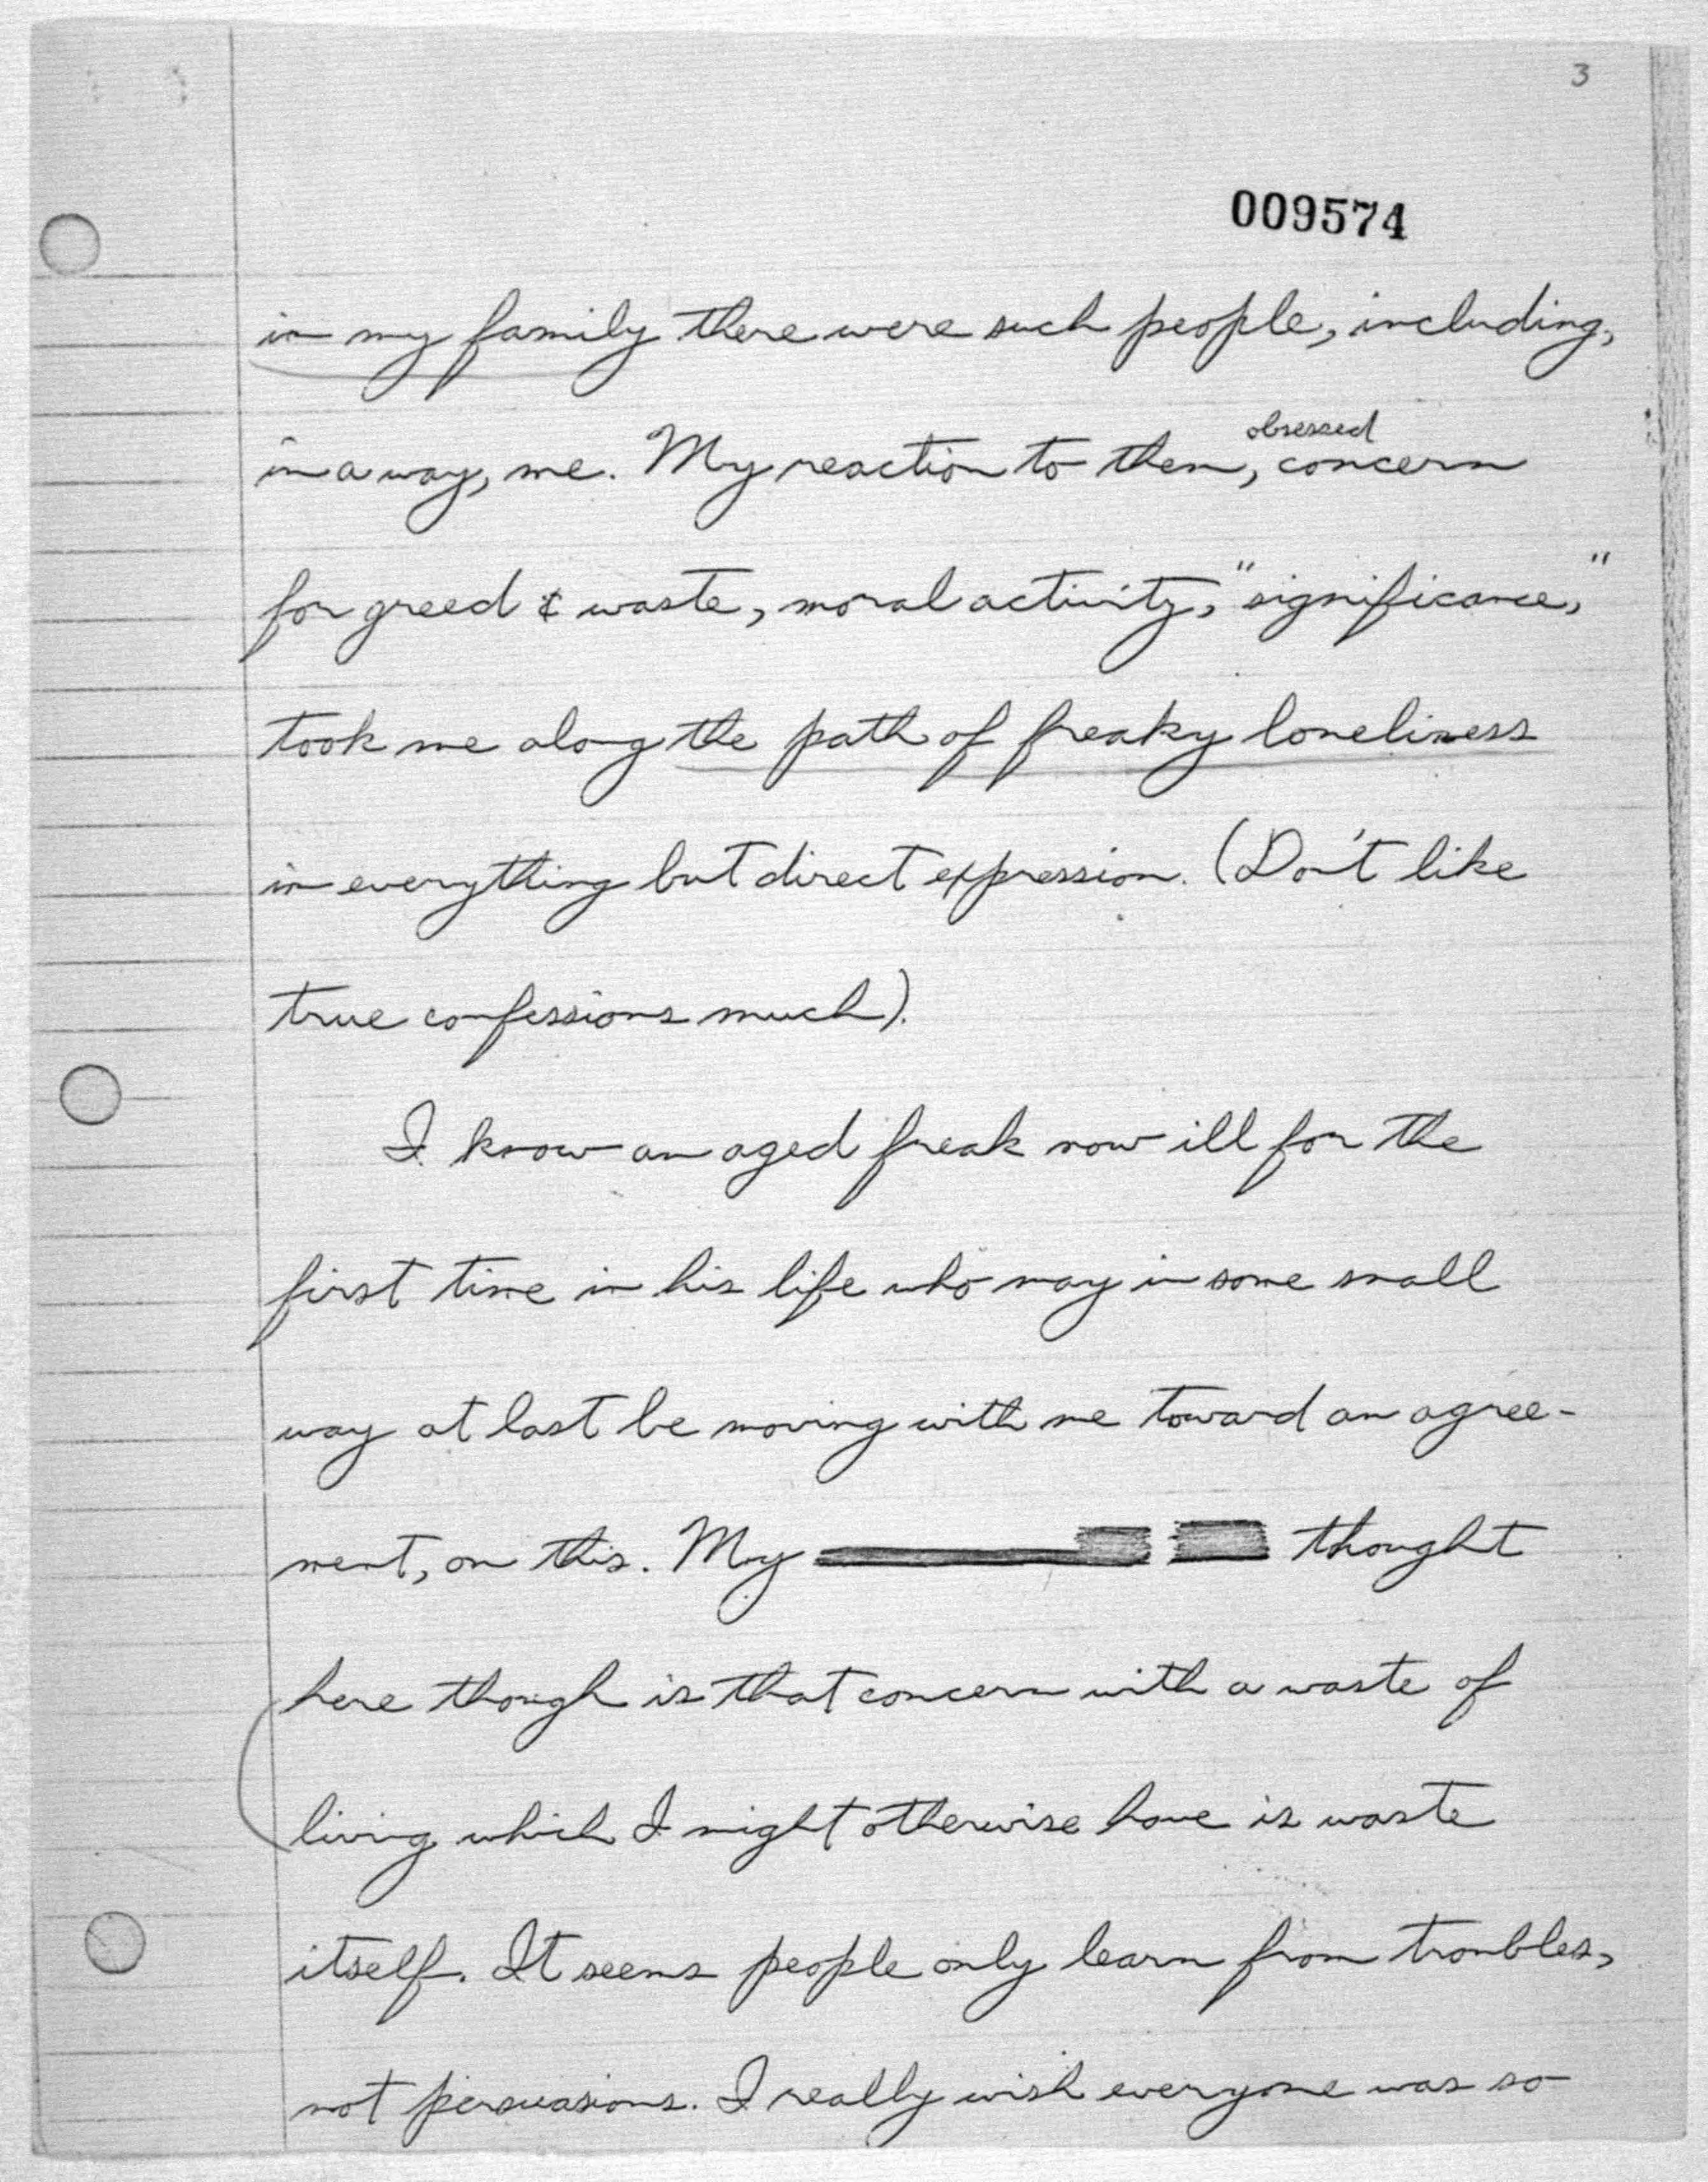 3
009574
in my family there were such people, including,
in a way, me. My reaction to them, obsessed concern
for greed & waste, moral activity, "significance,"
took me along the path of freaky loneliness
in everything but direct expression. (Don't like
true confessions much).
I know an aged freak now ill for the
first time in his life who may in some small
way at last be moving with me toward an agree-
ment, on this. My thought
here though is that concern with a waste of
living which I might otherwise have is waste
itself. It seems people only learn from troubles,
not persuasions. I really wish everyone was so